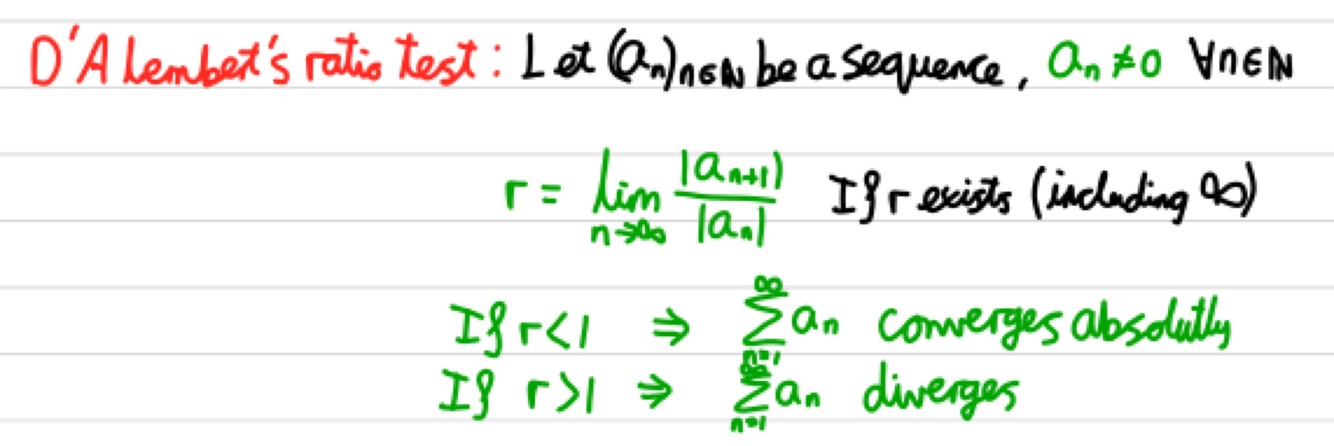 D'Alembert's ratio test: Let (aₙ)ₙ∈ℕ be a sequence, aₙ ≠ 0 ∀n∈ℕ
r = lim n→∞ |aₙ₊₁| / |aₙ| If r exists (including ∞)
If r < 1 ⇒ ∑ₙ₌₁^∞ aₙ converges absolutly
If r > 1 ⇒ ∑ₙ₌₁^∞ aₙ diverges